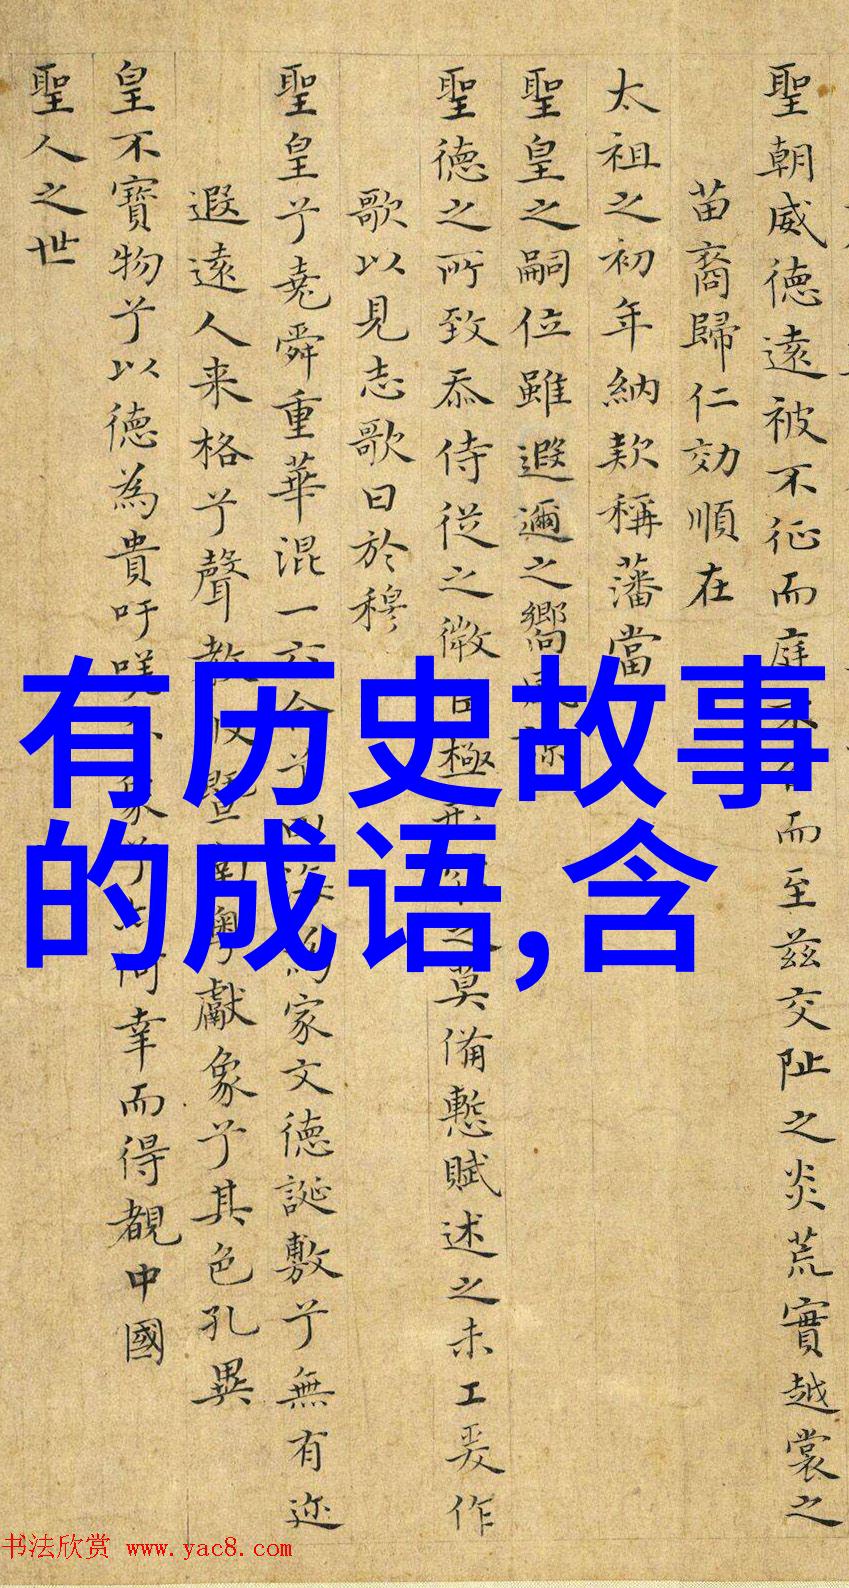 有历史故事
的成语,含
聖朝威德遠被不征而庭而至兹交阯之炎荒實越裳之
苗裔歸仁効順在
太祖之初年納款稱藩當
聖皇之嗣位雖遐邇之嚮
聖德之所致忝侍從之微極之莫備慙賦述之未工爰作
歌以見志歌曰於穆
聖皇兮堯舜重華混一家文德誕敷兮無有迩
遐遠人来格兮聲教暨獻象兮其色孔異
皇不寶物兮以德為貴吁何幸而得覩中國
聖人之世
书法欣赏 www.yac8.com